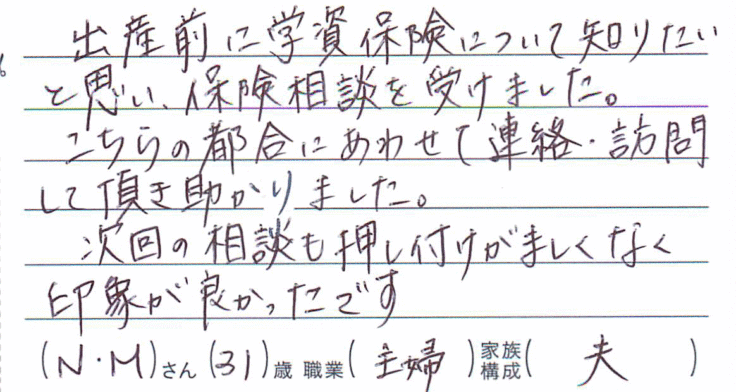 出産前に学資保険について知りたい
と思い、保険相談を受けました。
こちらの都合にあわせて連絡・訪問
して頂き助かりました。
次回の相談も押し付けがましくなく
印象が良かったです
(N・M)さん(31)歳 職業(主婦)家族構成(夫)